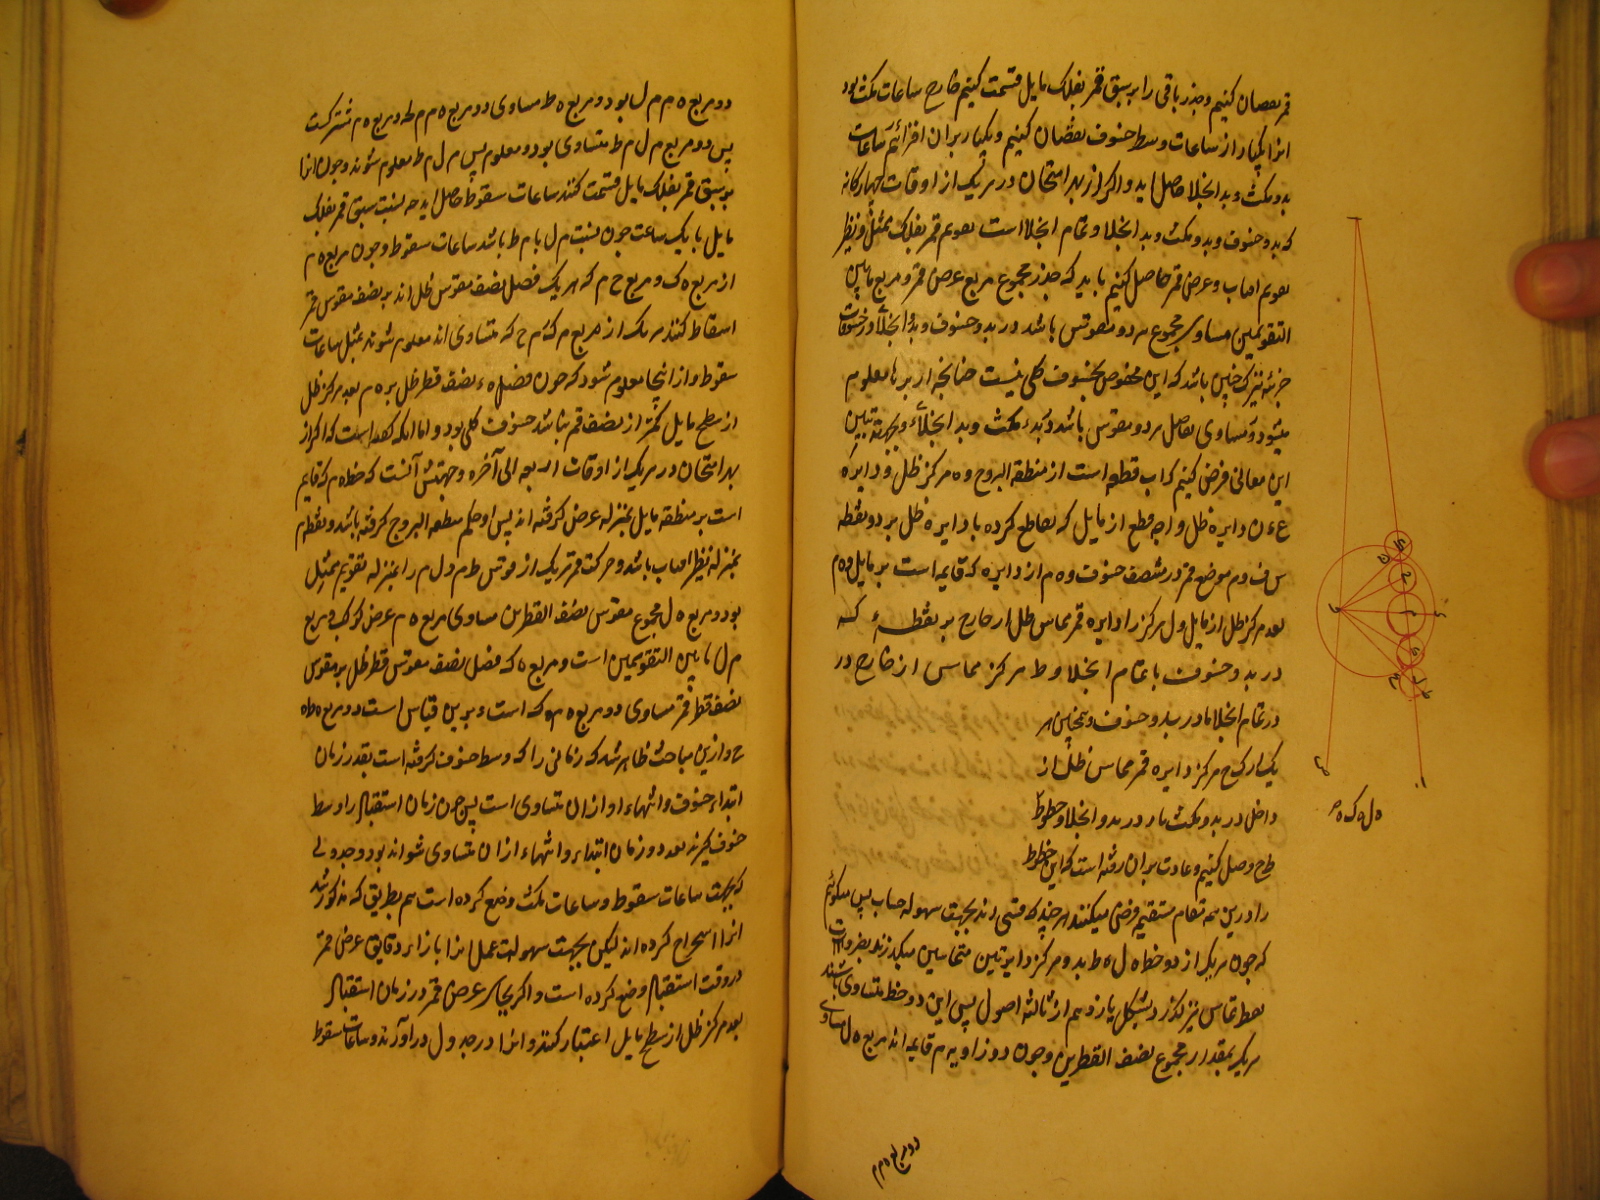 قمر نقصان کنیم و جذر باقی را بر سبق قمر بفلک مایل قسمت کنیم خارج ساعات مکث بود
انرا یکبار از ساعات وسط خسوف نقصان کنیم و یکبار بران افزائیم ساعات
بدو مکث و بدو انجلا حاصل اید و اکر از بهر امتحان در هر یک از اوقات چهارکانه
که بدو خسوف و بدو مکث و بدو انجلا و تمام انجلا است تقویم قمر بفلک ممثل و نظیر
تقویم افتاب و عرض قمر حاصل کنیم باید که جذر مجموع مربع عرض قمر و مربع مابین
التقویمین مساوی مجموع هر دو منصوتس باشد در بدو خسوف و بدو انجلا و در خسوفات
جزئیه نیز کچنین باشد که این مخصوص بخسوف کلی نیست چنانچه از برنا معلوم
میشود و مساوی تفاضل هر دو مقوس باشد و بدء مکث و بدو انجلاء و بجهة تبیین
این معانی فرض کنیم که اب قطعه است از منطقه البروج و ه مرکز ظل و دایره
ع ن دایره ظل و اج قطع از مایل که تقاطع کرده با دایره ظل بر دو نقطه
س ف و م موضع قمر در منتصف خسوف و ه م از دایره که قایمه است بر مایل و ه م
بعد مرکز ظل از مایل و ل مرکز را دایره قمر مماس ظل از خارج بر نقطهء که
در بدو خسوف یا تمام انجلا و ط مرکز مماس از خارج در
در تمام انجلا یا در بدو خسوف و همچنین هر
یک از ک ح مرکز دایره قمر مماس ظل از
داخل در بدو مکث یا در بدو انجلا و خطوط
طرح وصل کنیم و عادت بران رفته است که این خطوط
را درین همه مقام مستقیم فرض میکنند هر چند که قسی اند بجهت سهوله حساب پس میکوئیم
که چون هر یک از دو خط ه ل ه ط بدو مرکز دایرتین متماسین میکذرند بضرورت
نقطه تماس نیز بکذرد بشکل یازدهم از ثالثه اصول پس این دو خط متساوی باشند
هر یک بمقدار مجموع نصف القطرین و چون دو زاویه م قایمه اند مربع ه ل مساوی
دو مربع ه م م
ه ل ه ک ه م
دو مربع ه م م ل بود و مربع ه ط مساوی دو مربع ه م م ط و مربع ه م مشترکست
پس دو مربع م ل م ط متساوی بود و معلوم پس م ل م ط معلوم شوند و چون انرا
بر سبق قمر بفلک مایل قسمت کنند ساعات سقوط حاصل اید چه نسبت سبق قمر بفلک
مایل با یک ساعت چون نسبت م ل یا م ط باشد ساعات سقوط و چون مربع ه م
از مربع ه ک و مربع ح م که هر یک فضل نصف مقوس ظل اند بر نصف مقوس قمر
اسقاط کنند هر یک از مربع م ک م ح که متساوی اند معلوم شوند بمثل ساعات
سقوط و از اینجا معلوم شود که چون فضل ه ء نصف قطر ظل بر ه م بعد مرکز ظل
از سطح مایل کمتر از نصف قمر نباشد خسوف کلی بود و اما انکه کفته است که اکر از
بهر امتحان در هر یک از اوقات اربعه الی آخره وجهش آنست که خط ه م که قایم
است بر منطقه مایل بمنزله عرض کرفته اند پس او حکم منطقه البروج کرفته باشد و نقطه م
بمنزله نظیر افتاب باشد و حرکت قمر هر یک از قوتس ط م و ل م را بمنزله تقویم ممثل
بود و مربع ه ل مجموع مقوس نصف القطرین مساوی مربع ه م عرض کوکب و مربع
م ل مابین التقویمین است و مربع ه ک فضل نصف مقوس قطر ظل بر مقوس
نصف قطر قمر مساوی دو مربع ه م م ک است و برین قیاس است دو مربع ه ط ه
ح و ازین مباحث ظاهر شد که زمانی را که وسط خسوف کرفته است بقدر زمان
ابتداء خسوف و انتهاء او ازان متساوی است پس چون زمان استقبال را وسط
خسوف کیرند بعد دو زمان ابتداء و انتهاء ازان متساوی شواند بود و جدولی
که بجهت ساعات سقوط و ساعات مکث وضع کرده است هم بطریق که مذکور شد
انرا استخراج کرده اند لیکن بجهت سهولت عمل انرا بازاء دقایق عرض قمر
در وقت استقبال وضع کرده است و اکر بجای عرض قمر در زمان استقبال
بعد مرکز ظل از سطح مایل اعتبار کنند و انرا در جدول در آورند و ساعات سقوط